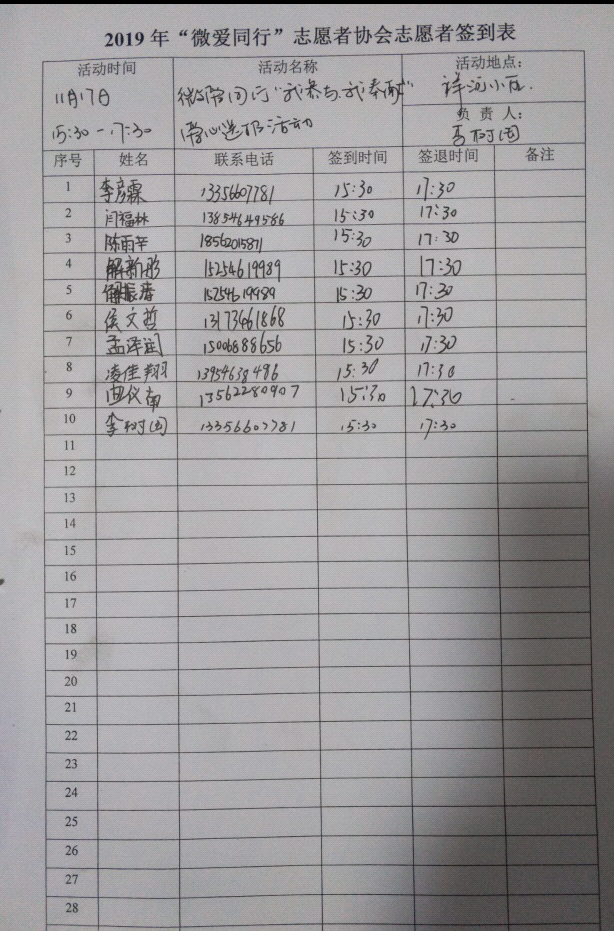 2019 年“微爱同行”志愿者协会志愿者签到表
活动时间 活动名称 活动地点：
11月17日 微爱同行“我参与，我奉献” 祥河小区
15:30-17:30 爱心送报活动 负责人：
李树国
序号 姓名 联系电话 签到时间 签退时间 备注
1 李彦霖 13356607781 15:30 17:30
2 闫福林 13854649586 15:30 17:30
3 陈雨 18562015871 15:30 17:30
4 解新彤 15254619989 15:30 17:30
5 解振 15254619989 15:30 17:30
6 侯文哲 13173461868 15:30 17:30
7 孟泽润 15006888656 15:30 17:30
8 凌佳翔 13954638496 15:30 17:30
9 曲仪南 13562280907 15:30 17:30
10 李树国 13356607781 15:30 17:30
11
12
13
14
15
16
17
18
19
20
21
22
23
24
25
26
27
28